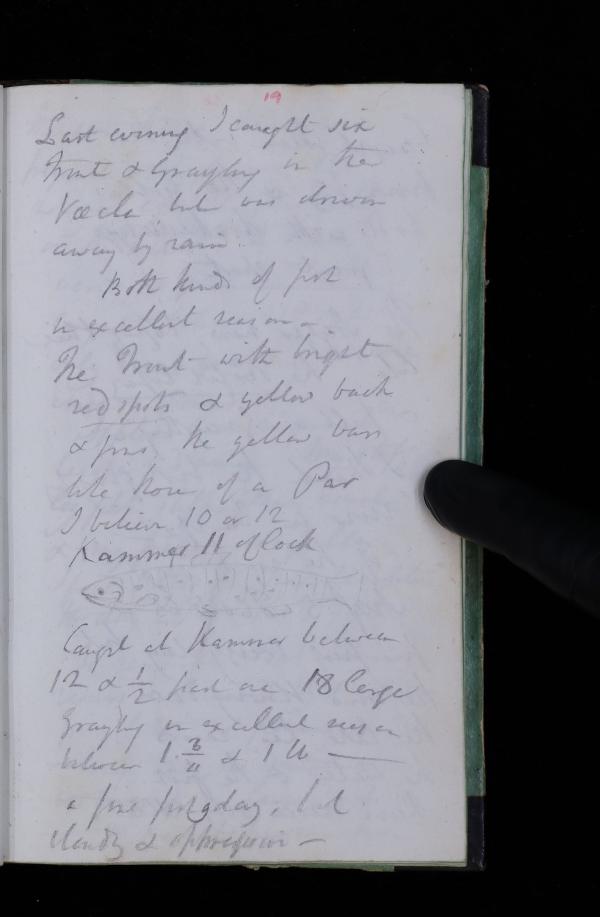 19
Last evening I caught six
Trout & Grayling in the
Vœcla but was driven
away by rain.
Both kinds of fish
in excellent season.
The Trout with bright
red spots & yellow back
& fins, the yellow bars
like those of a Par
I believe 10 or 12
Kammer 11 oClock
Caught at Kammer between
12 & 1/2 past one 18 large
Grayling in excellent season
between 1 & 1 lb —
a fine fishing day, but
cloudy & oppressive —